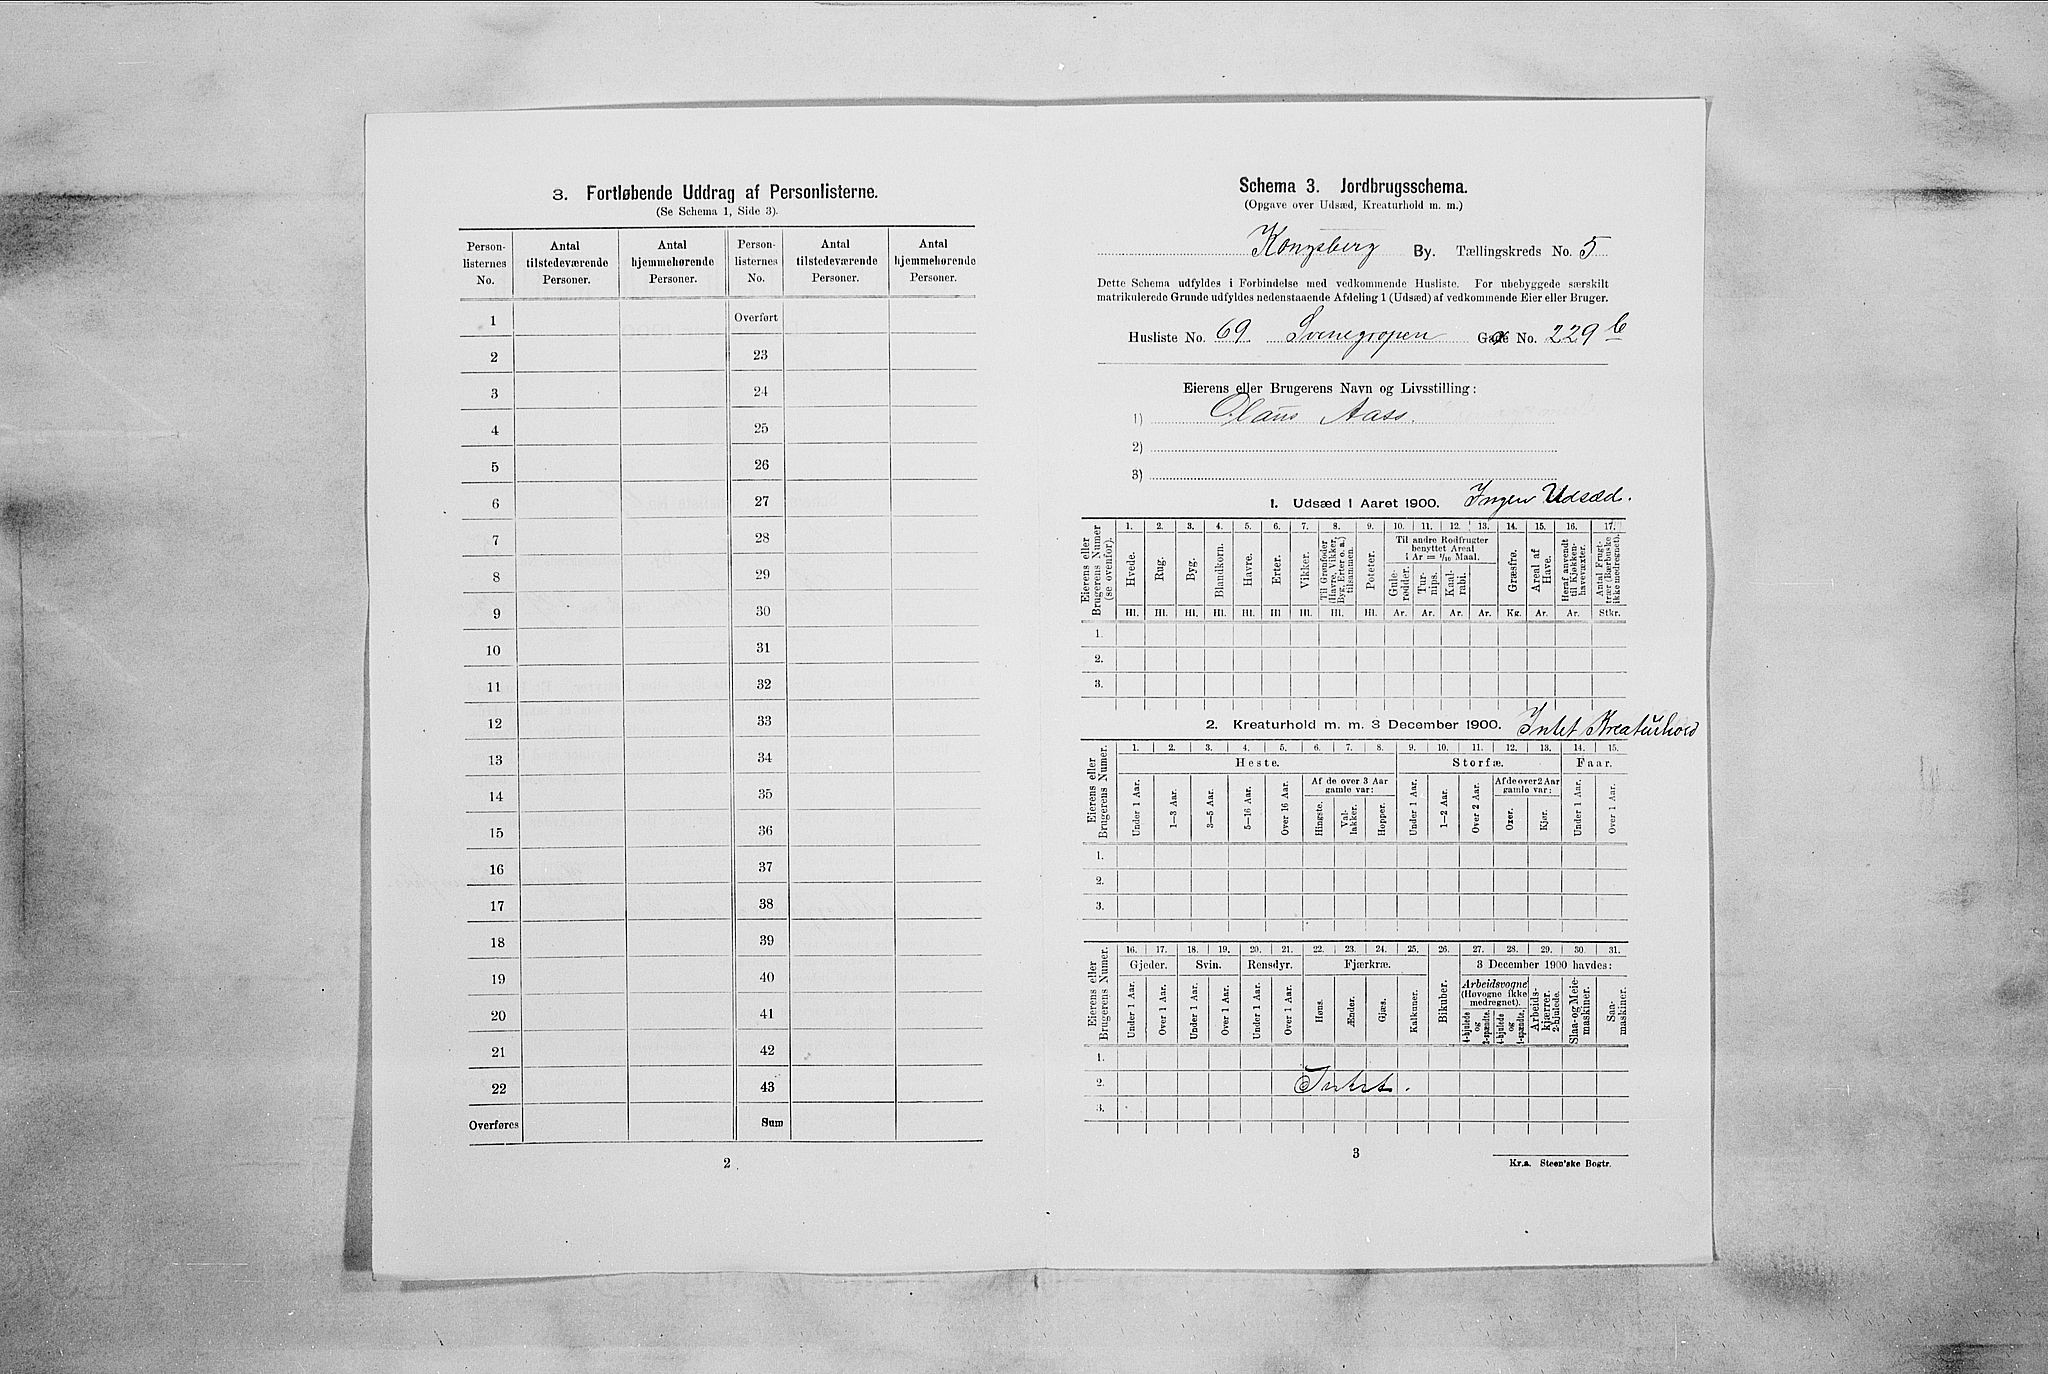 3. Fortløbende Uddrag af Personlisterne.
(Se Schema 1, Side 3).
Person-listernes No. Antal tilstedeværende Personer. Antal hjemmehørende Personer. Person-listernes No. Antal tilstedeværende Personer. Antal hjemmehørende Personer.
1 Overført
2 23
3 24
4 25
5 26
6 27
7 28
8 29
9 30
10 31
11 32
12 33
13 34
14 35
15 36
16 37
17 38
18 39
19 40
20 41
21 42
22 43
Overføres Sum
2
Schema 3. Jordbrugsschema.
(Opgave over Udsæd, Kreaturhold m. m.)
Kongsberg By. Tællingskreds No. 5
Dette Schema udfyldes i Forbindelse med vedkommende Husliste. For ubebyggede særskilt
matrikulerede Grunde udfyldes nedenstaaende Afdeling 1 (Udsæd) af vedkommende Eier eller Bruger.
Husliste No. 69 Svenegropen Gade No. 229 b
Eierens eller Brugerens Navn og Livsstilling:
1) Olaus Aass.
2)
3)
1. Udsæd i Aaret 1900. Ingen Udsæd.
Eierens eller Brugerens Numer (se ovenfor).
1. 2. 3. 4. 5. 6. 7. 8. 9. 10. 11. 12. 13. 14. 15. 16. 17.
Hvede. Rug. Byg. Blandkorn. Havre. Erter. Vikker. Til Grønfoder (Havre, Vikker, Byg, Erter o. a.) tilsammen. Poteter.
Til andre Rodfrugter benyttet Areal 1 Ar = 1/10 Maal.
Gule-rødder. Tur-nips. Kaal-rabi.
Græsfrø. Areal af Have. Heraf anvendt til Kjøkken-havevæxter. Antal Frugt-trær (Bærbuske ikke medregnet).
Hl. Hl. Hl. Hl. Hl. Hl. Hl. Hl. Hl. Ar. Ar. Ar. Ar. Kg. Ar. Ar. Stkr.
1.
2.
3.
2. Kreaturhold m. m. 3 December 1900. Intet Kreaturhold
Eierens eller Brugerens Numer.
1. 2. 3. 4. 5. 6. 7. 8. 9. 10. 11. 12. 13. 14. 15.
Heste. Storfæ. Faar.
Af de over 3 Aar gamle var: Af de over 2 Aar gamle var:
Under 1 Aar. 1—3 Aar. 3—5 Aar. 5—16 Aar. Over 16 Aar. Hingste. Val-lakker. Hopper. Under 1 Aar. 1—2 Aar. Over 2 Aar. Oxer. Kjør. Under 1 Aar. Over 1 Aar.
1.
2.
3.
Eierens eller Brugerens Numer.
16. 17. 18. 19. 20. 21. 22. 23. 24. 25. 26. 27. 28. 29. 30. 31.
Gjeder. Svin. Rensdyr. Fjærkræ. Bikuber. 3 December 1900 havdes:
Under 1 Aar. Over 1 Aar. Under 1 Aar. Over 1 Aar. Under 1 Aar. Over 1 Aar. Høns. Ænder. Gjæs. Kalkuner.
Arbeidsvogne (Høvogne ikke medregnet).
4-hjulede og 2-spændte. 4-hjulede og 1-spændte. Arbeids-kjærrer, 2-hjulede. Slaa- og Meie-maskiner. Saa-maskiner.
1.
2. Intet.
3.
3
Kr.a. Steen'ske Bogtr.